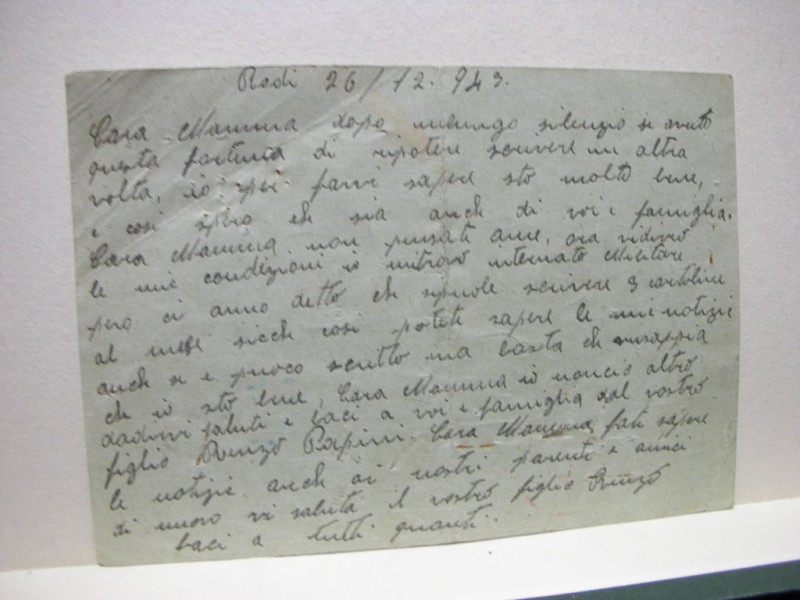 Rodi 26/12.943.
Cara Mamma dopo un lungo silenzio si avuto
questa fortuna di ripotere scrivere un altra
volta, io per farvi sapere sto molto bene,
e così spero che sia anche di voi e famiglia.
Cara Mamma non pensati ame, ora vidirò
le mie condizioni io mitrovo internato Militare
pero ci anno detto che sipuole scrivere 3 cartoline
al mese sicche così poteti sapere le mie notizie
anch se e puoco scritto ma basta che
ch io sto bene, Cara Mamma io noncio altro
dadirvi saluti e baci a voi e famiglia dal vostro
figlio Renzo Papini. Cara Mamma fati sapere
le notizie anch ai nostri parenti e amici
di nuovo vi saluta il vostro figlio Renzo
baci a tutti quanti.